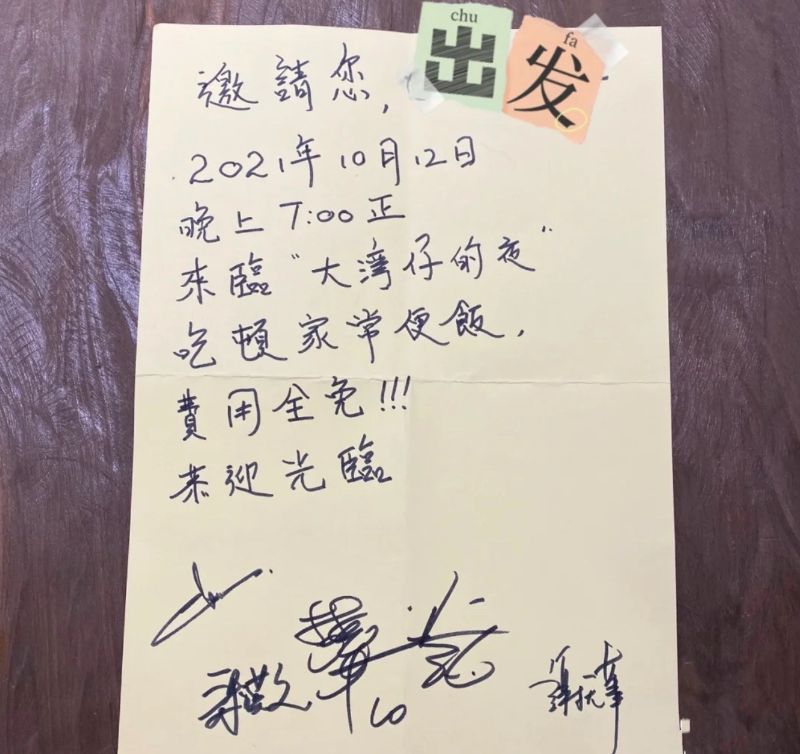 chu fa
出发
邀請您,
2021年10月12日
晚上 7:00正
來臨“大灣仔的夜”
吃頓家常便飯,
費用全免!!!
恭迎光臨